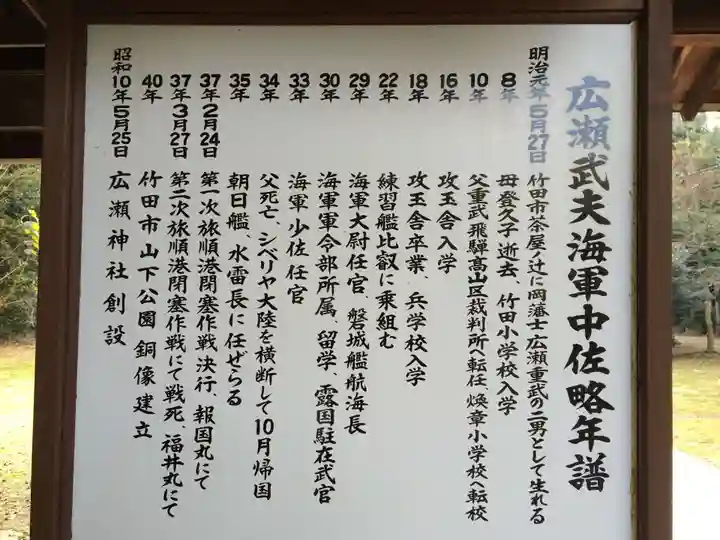 広瀬武夫海軍中佐略年譜
明治元年5月27日 竹田市茶屋ノ辻に岡藩士広瀬重武の二男として生れる
8年 母登久子逝去、竹田小学校入学
10年 父重武飛騨高山区裁判所へ転任 煥章小学校へ転校
16年 攻玉舎入学
18年 攻玉舎卒業、兵学校入学
22年 練習艦比叡に乗組む
29年 海軍大尉任官、磐城艦航海長
30年 海軍軍令部所属、留学、露国駐在武官
33年 海軍少佐任官
34年 父死亡、シベリヤ大陸を横断して10月帰国
35年 朝日艦、水雷長に任ぜらる
37年2月24日 第一次旅順港閉塞作戦決行、報国丸にて
37年3月27日 第二次旅順港閉塞作戦にて戦死、福井丸にて
40年 竹田市山下公園銅像建立
昭和10年5月25日 広瀬神社創設